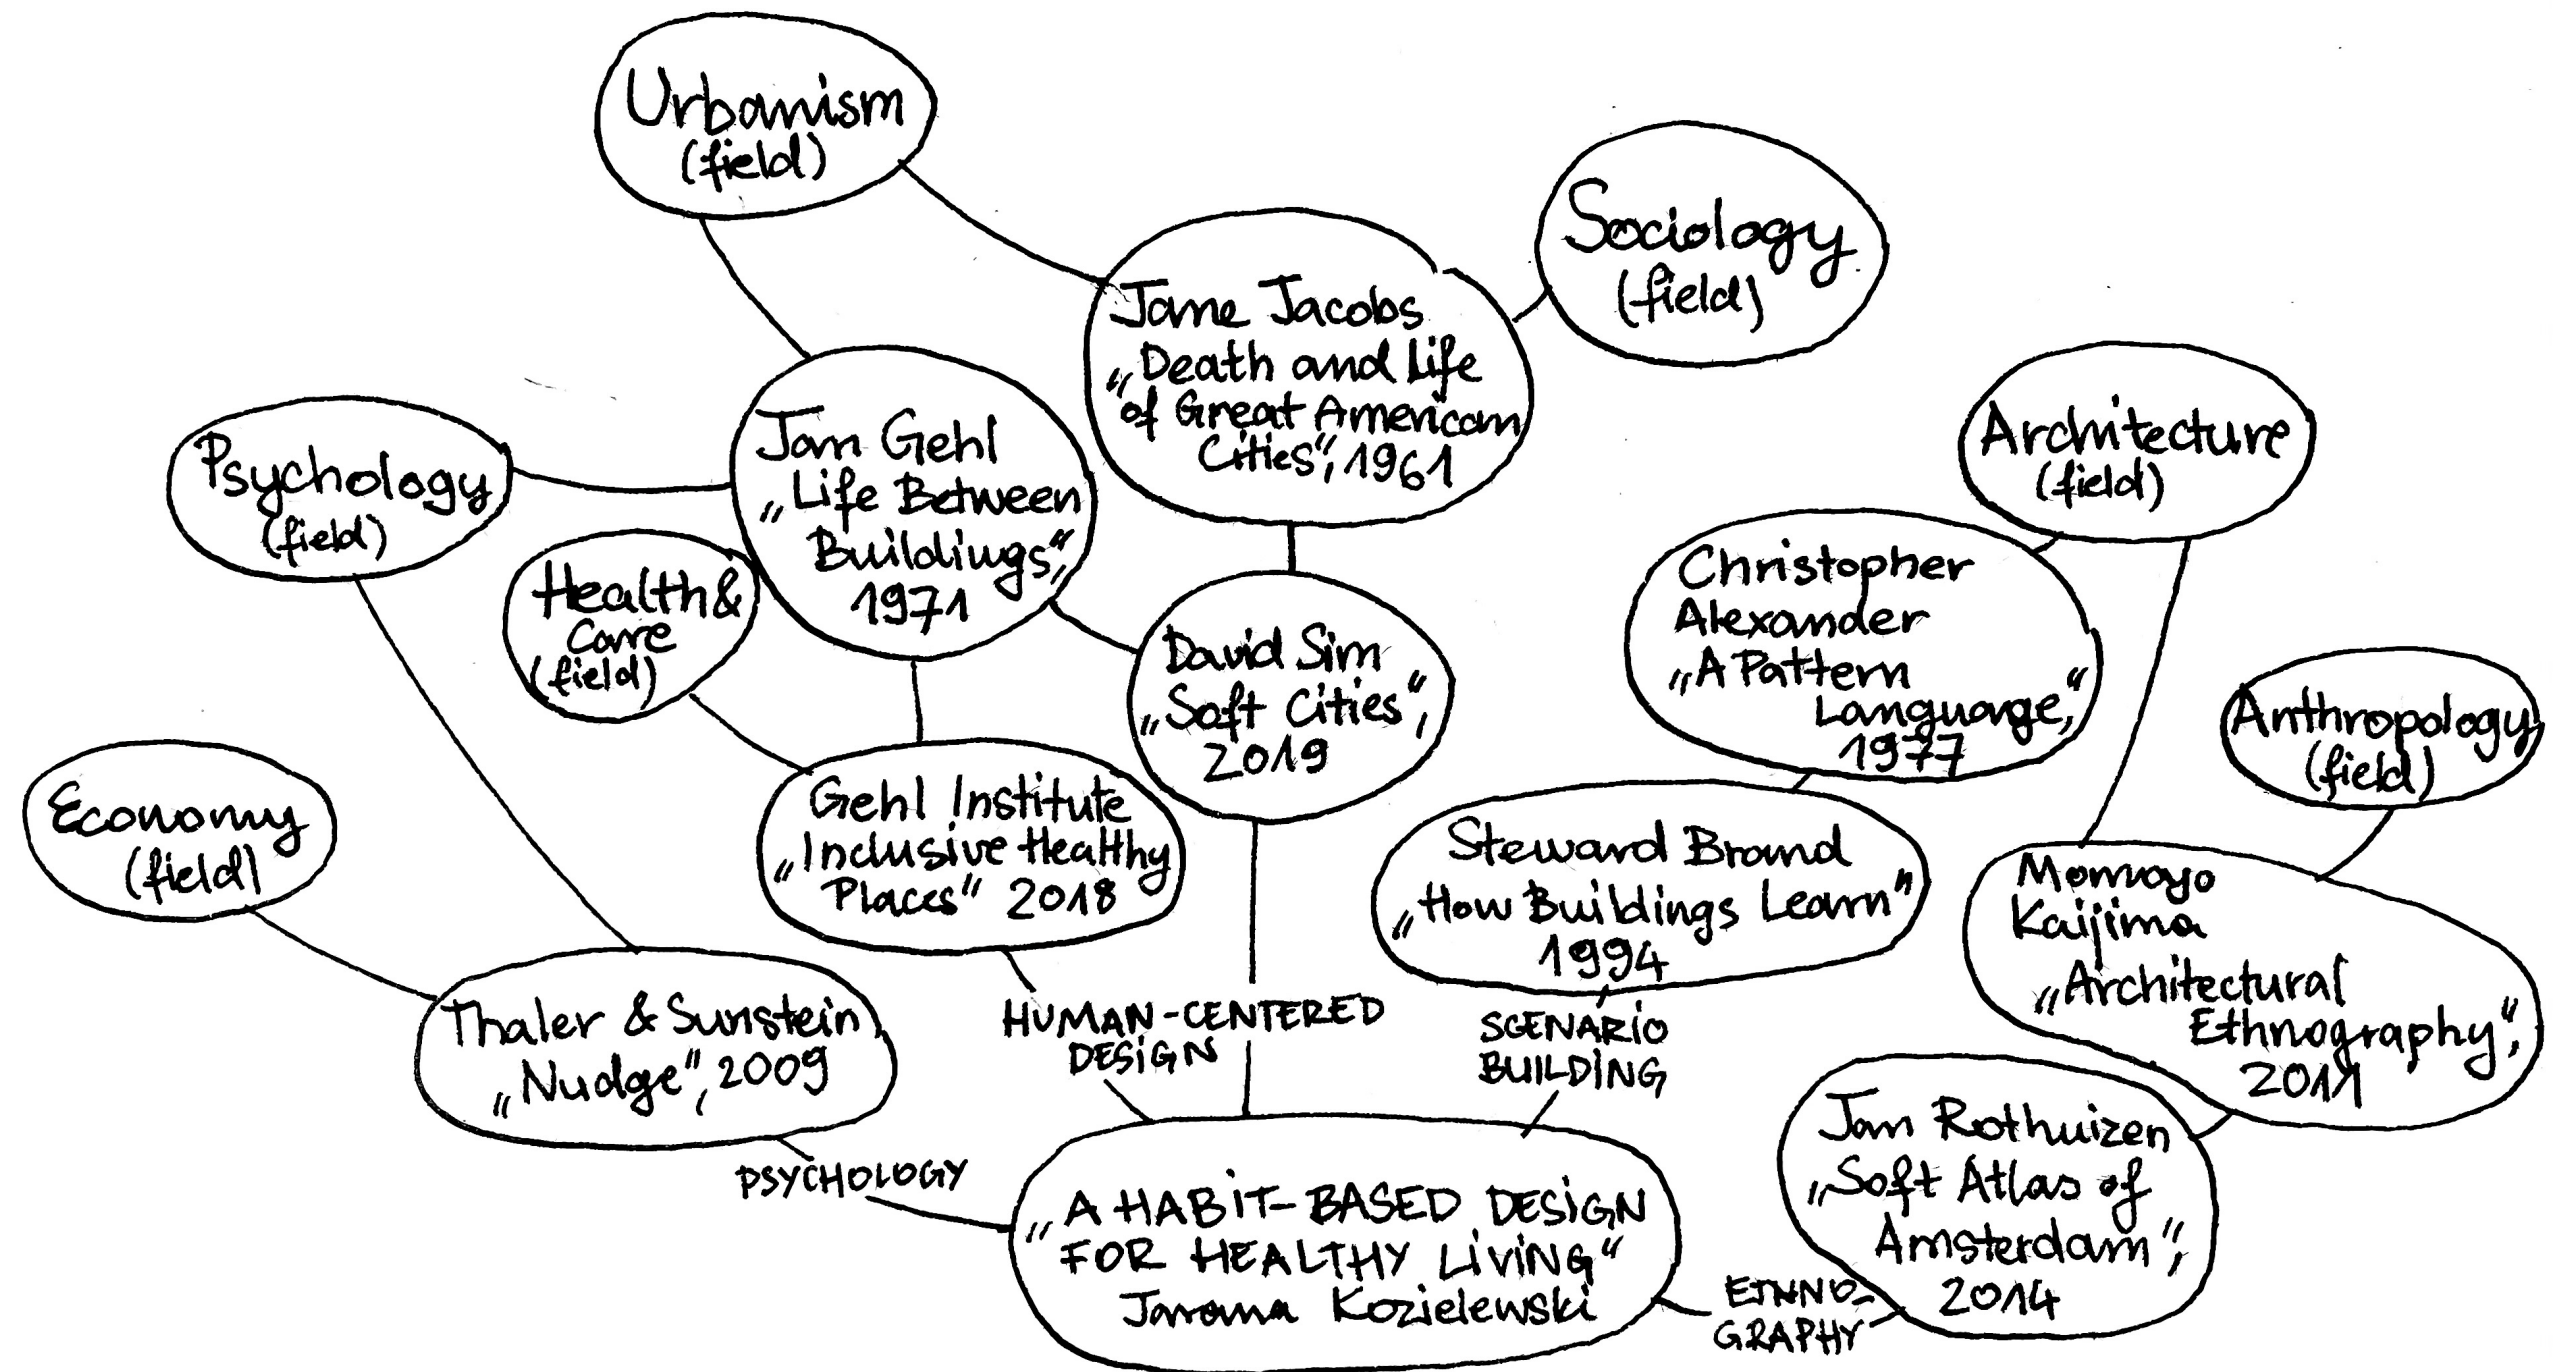 Urbanism
(field)
Sociology
(field)
Jane Jacobs
„Death and Life
of Great American
Cities“, 1961
Architecture
(field)
Psychology
(field)
Jan Gehl
„Life Between
Buildings“,
1971
Health &
Care
(field)
Christopher
Alexander
„A Pattern
Language,“
1977
David Sim
„Soft Cities“,
2019
Anthropology
(field)
Economy
(field)
Gehl Institute
„Inclusive Healthy
Places“ 2018
Steward Brand
„How Buildings Learn“
1994
Momoyo
Kaijima
„Architectural
Ethnography“,
Thaler & Sunstein
„Nudge“, 2009
HUMAN-CENTERED
DESIGN
SCENARIO
BUILDING
Jan Rothuizen
„Soft Atlas of
Amsterdam“,
2014
PSYCHOLOGY
„A HABIT-BASED DESIGN
FOR HEALTHY LIVING“
Kozielewski
ETHNO-
GRAPHY